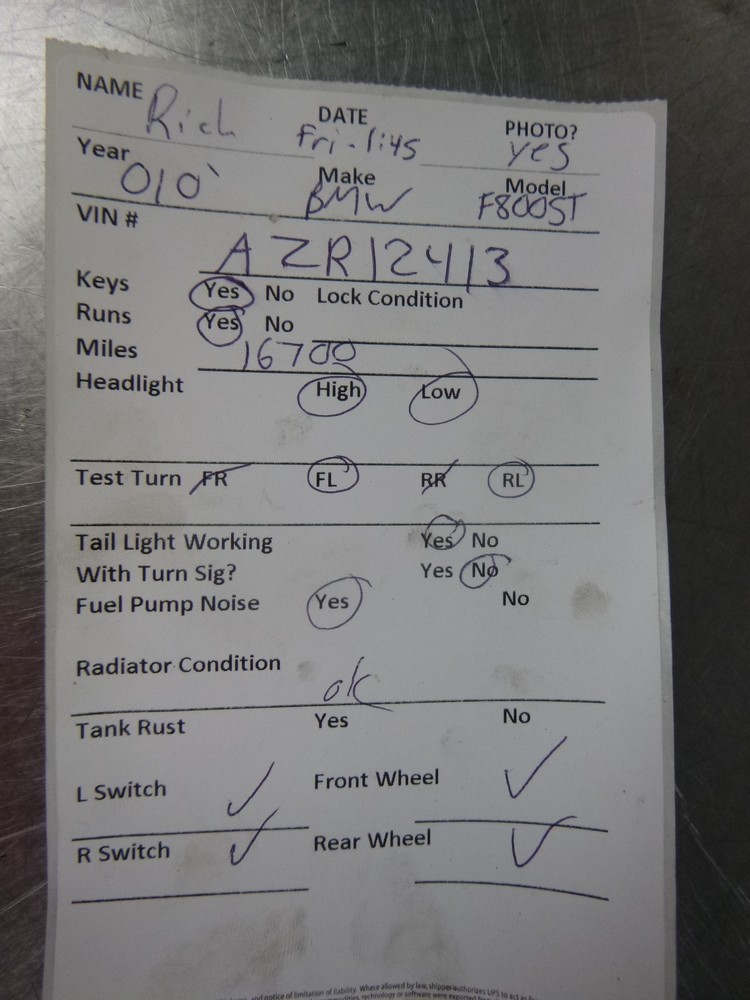 NAME Rich DATE Fri-1:45 PHOTO? yes
Year 010` Make BMW Model F800ST
VIN # AZR12413
Keys Yes No Lock Condition
Runs Yes No
Miles 16700
Headlight High Low
Test Turn FR FL RR RL
Tail Light Working Yes No
With Turn Sig? Yes No
Fuel Pump Noise Yes No
Radiator Condition ok
Tank Rust Yes No
L Switch ✓ Front Wheel ✓
R Switch ✓ Rear Wheel ✓
and notice of limitation of liability. Where allowed by law, shipper authorizes UPS to act as
technology or software were exported from